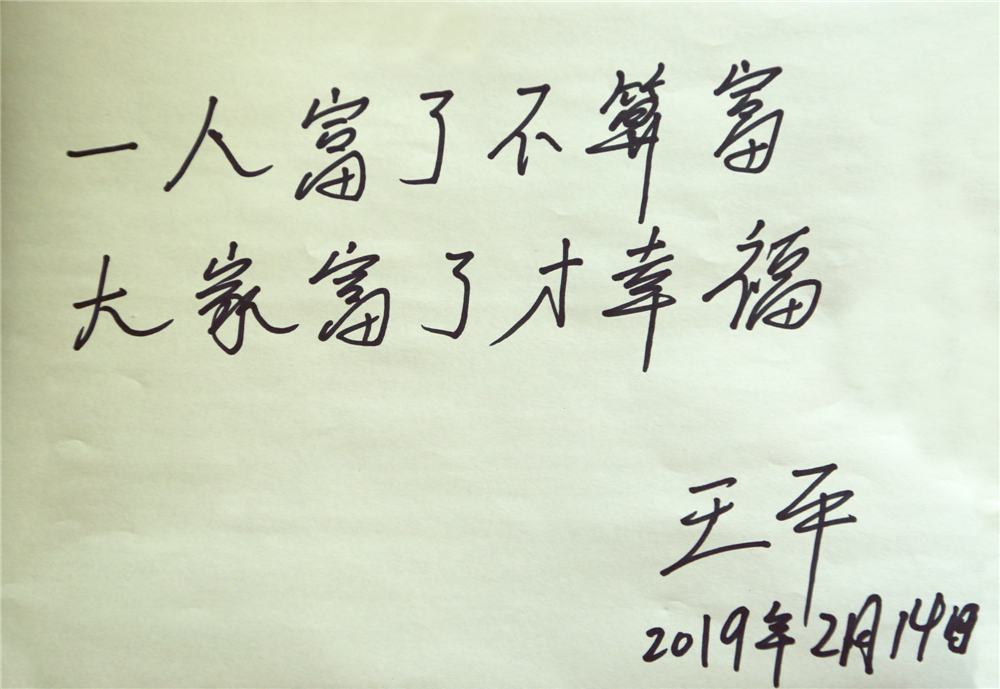 一人富了不算富
大家富了才幸福
王平
2019年2月14日